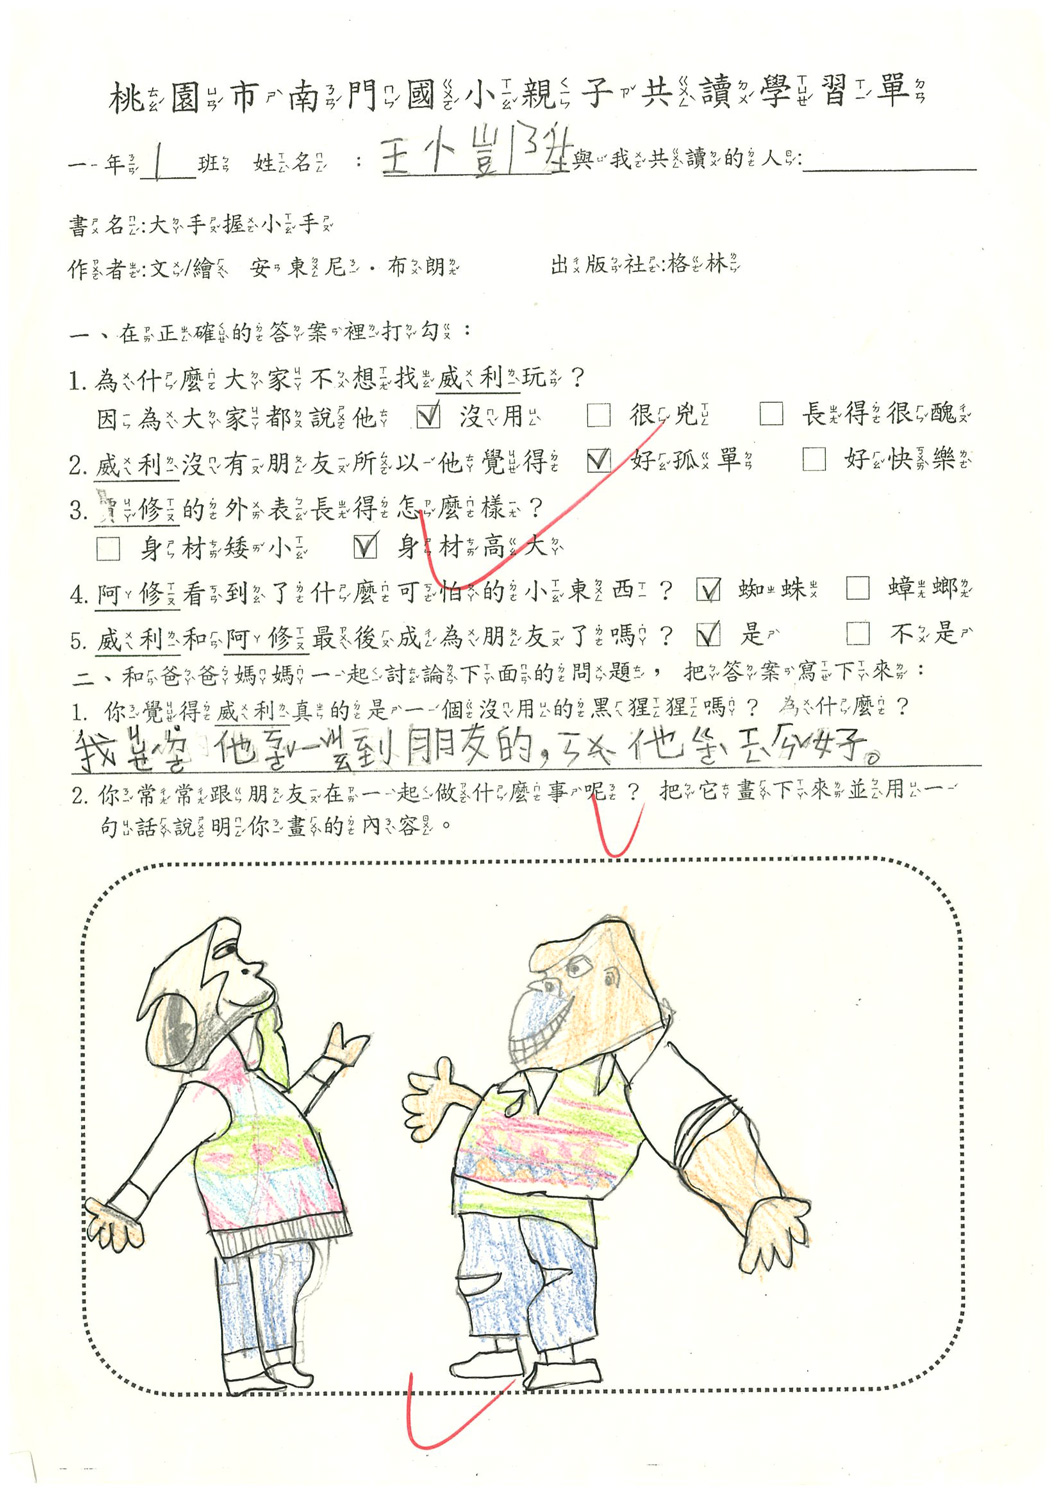 桃園市南門國小親子共讀學習單
一年1班 姓名：王小豈 與我共讀的人:
書名:大手握小手
作者:文/繪 安東尼·布朗 出版社:格林
一、在正確的答案裡打勾：
1.為什麼大家不想找威利玩？
因為大家都說他 ☑ 沒用 □ 很兇 □ 長得很醜
2.威利沒有朋友所以他覺得 ☑ 好孤單 □ 好快樂
3. 修的外表長得怎麼樣？
□ 身材矮小 ☑ 身材高大
4.阿修看到了什麼可怕的小東西？ ☑ 蜘蛛 □ 蟑螂
5.威利和阿修最後成為朋友了嗎？ ☑ 是 □ 不是
二、和爸爸媽媽一起討論下面的問題，把答案寫下來：
1. 你覺得威利真的是一個沒用的黑猩猩嗎？ 為什麼？
我 他 一 到朋友的, 他 好。
2.你常常跟朋友在一起做什麼事呢？ 把它畫下來並用一
句話說明你畫的內容。